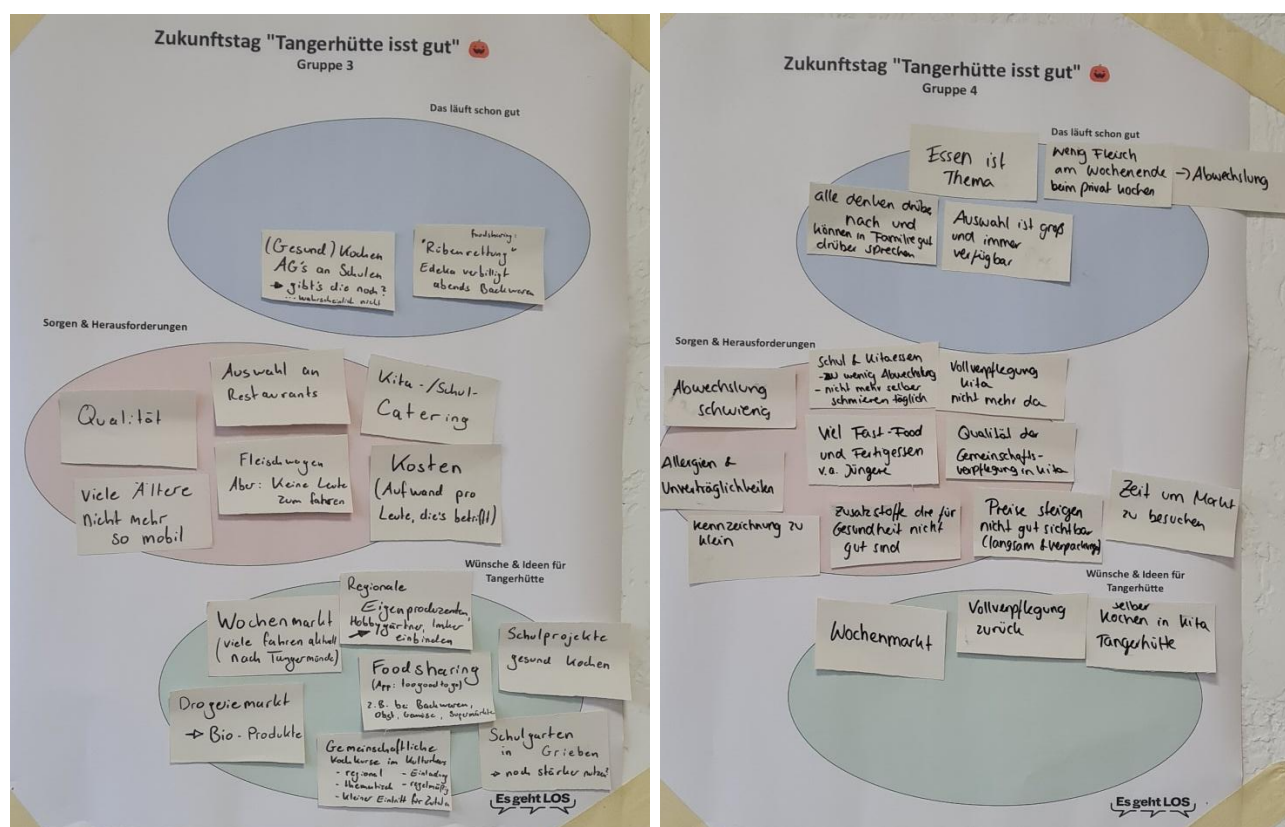 Zukunftstag "Tangerhütte isst gut"
Gruppe 3
Das läuft schon gut
(Gesund) Kochen
AG's an Schulen
→ gibt's die noch?
... wahrscheinlich nicht
Foodsharing:
"Rübenrettung"
Edeka verbilligt
abends Backwaren
Sorgen & Herausforderungen
Qualität
Auswahl an
Restaurants
Kita-/Schul-
Catering
Viele Ältere
nicht mehr
so mobil
Fleischwagen
Aber: Keine Leute
zum fahren
Kosten
(Aufwand pro
Leute, die's betrifft)
Wünsche & Ideen für
Tangerhütte
Wochenmarkt
(viele fahren aktuell
nach Tangermünde)
Regionale
Eigenproduzenten,
Hobbygärtner, Imker
→ einbinden
Schulprojekte
gesund kochen
Foodsharing
(App: toogoodtogo)
z.B. bei Backwaren,
Obst, Gemüse, Supermärkte
Drogeriemarkt
→ Bio-Produkte
Gemeinschaftliche
Kochkurse im Kulturhaus
- regional - Einladung
- thematisch - regelmäßig
- kleiner Eintritt für Zutaten
Schulgarten
in Grieben
→ noch stärker nutzen?
Es geht LOS
Zukunftstag "Tangerhütte isst gut"
Gruppe 4
Das läuft schon gut
Essen ist
Thema
wenig Fleisch
am Wochenende
beim privat kochen
→ Abwechslung
alle denken drüber
nach und
können in Familie gut
drüber sprechen
Auswahl ist groß
und immer
verfügbar
Sorgen & Herausforderungen
Abwechslung
schwierig
Schul & Kitaessen
- zu wenig Abwechslung
- nicht mehr selber
schmieren täglich
Vollverpflegung
Kita
nicht mehr da
Allergien &
Unverträglichkeiten
Viel Fast-Food
und Fertigessen
v.a. Jüngere
Qualität der
Gemeinschafts-
verpflegung in Kita
Kennzeichnung zu
klein
Zusatzstoffe die für
Gesundheit nicht
gut sind
Preise steigen
nicht gut sichtbar
(langsam & Verpackung)
Zeit um Markt
zu besuchen
Wünsche & Ideen für
Tangerhütte
Wochenmarkt
Vollverpflegung
zurück
selber
kochen in Kita
Tangerhütte
Es geht LOS